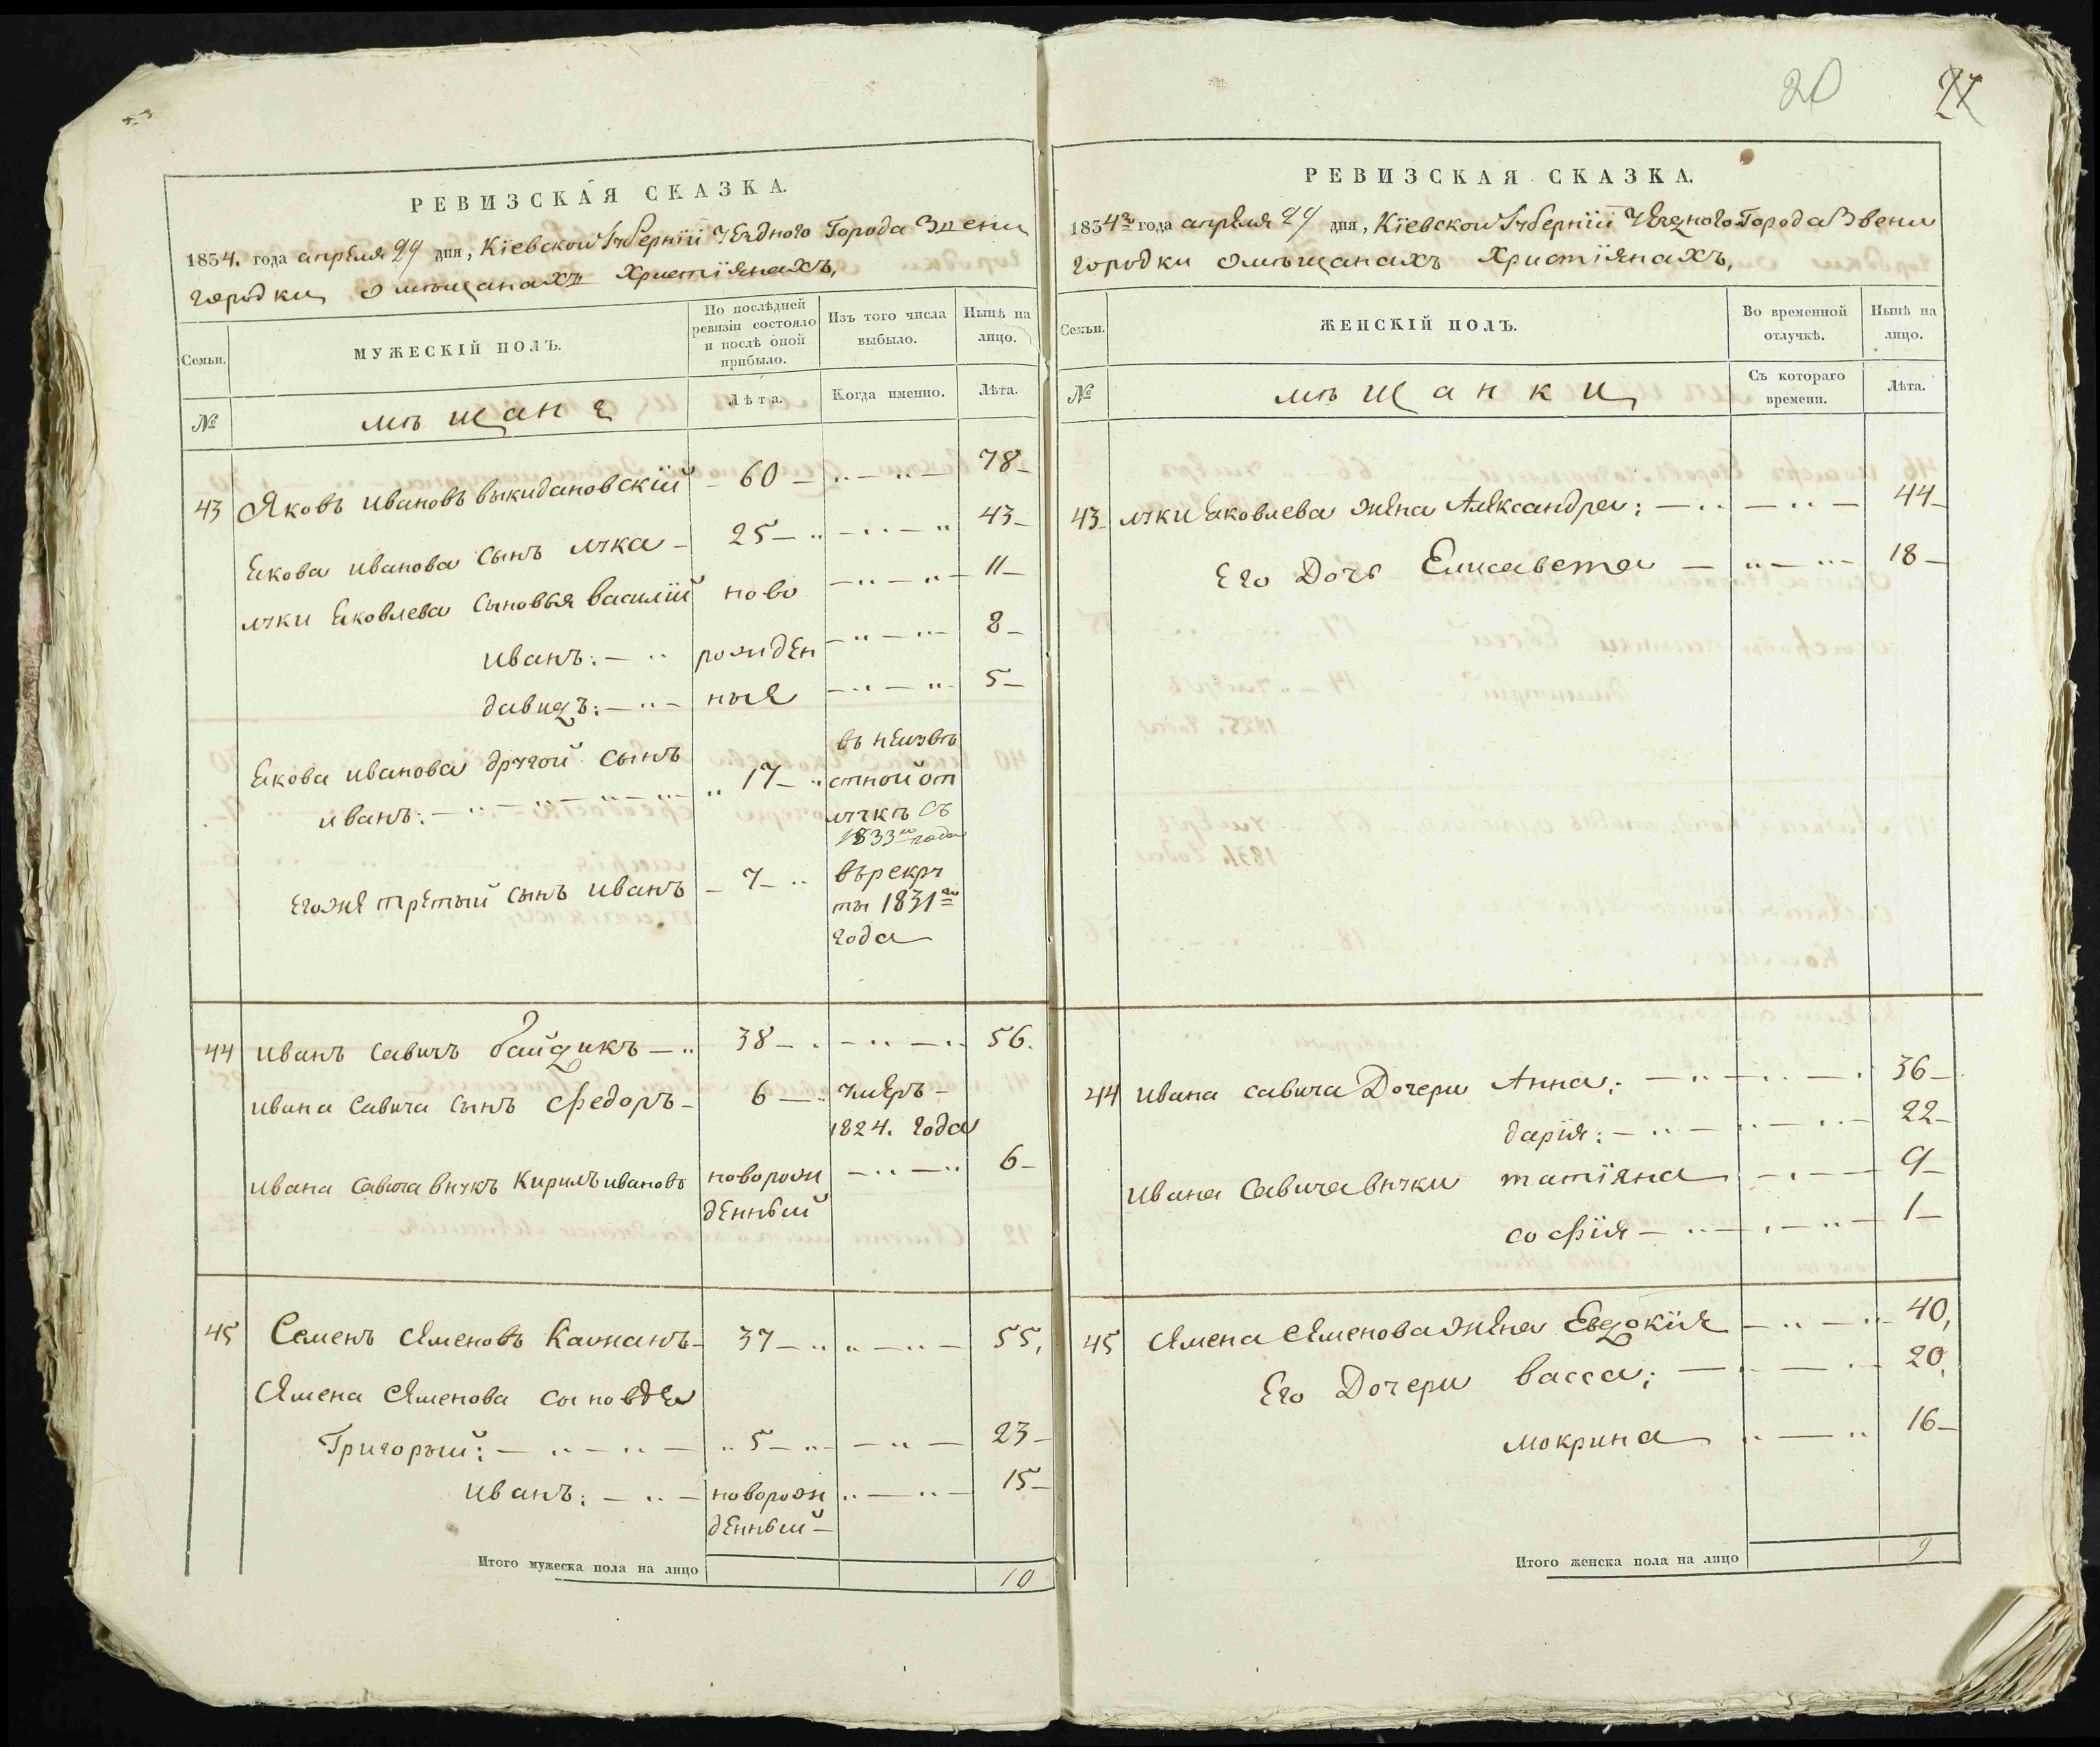 20 21
РЕВИЗСКАЯ СКАЗКА.
1834. года апреля 29 дня, Кіевской Губерніи Уезднаго Города Звени
городки о мѣщанахъ Христіянахъ,
Семьи.
МУЖЕСКІЙ ПОЛЪ.
По послѣдней
ревизіи состояло
и послѣ оной
прибыло.
Изъ того числа
выбыло.
Нынѣ на
лицо.
№
мѣщане
Лѣта.
Когда именно.
Лѣта.
43 Яковъ Ивановъ Выкидановскій – 60 – 78
Якова Иванова сынъ Лука – 25 – 43
Луки Яковлева сыновья Василій ново 11
Иванъ: рожден 8
Давидъ: ные 5
Якова Иванова другой сынъ
Иванъ: 17
въ неизвѣ
стной от
лучкѣ съ
1833го года
Его же третый сынъ Иванъ – 7
въ рекру
ты 1831го
года
44 Иванъ Савичъ Байдикъ 38 56.
Ивана Савича сынъ Федоръ – 6 умеръ –
1824. года
Ивана Савича внукъ Кирилъ Ивановъ новорож 6
денный
45 Семенъ Яменовъ Кауканъ 37 55,
Семена Семенова сыновья
Григорый: 5 23
Иванъ: новорож 15
денный
Итого мужеска пола на лицо 10
РЕВИЗСКАЯ СКАЗКА.
1834го года апреля 29 дня, Кіевской Губерніи Уезднаго Города Звени
городки о мѣщанахъ Христіянахъ,
Семьи.
ЖЕНСКІЙ ПОЛЪ.
Во временной
отлучкѣ.
Нынѣ на
лицо.
№
мѣщанки
Съ котораго
времени.
Лѣта.
43 Луки Яковлева жена Александра: 44
Его Дочь Елисавета 18
44 Ивана Савича Дочери Анна: 36
Дарія: 22
Ивана Савича внуки Татіяна 9
Софія 1
45 Семена Семенова жена Евдокія 40,
Его Дочери Васса: 20,
Мокрина 16
Итого женска пола на лицо 9